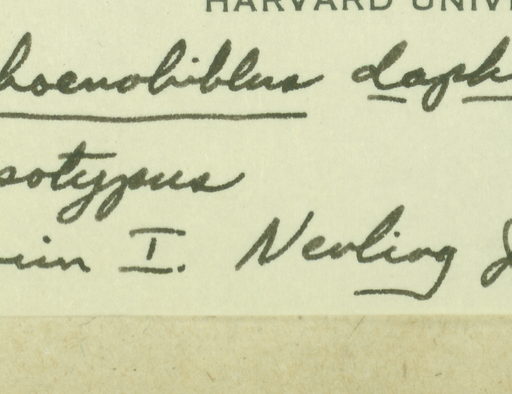 HARVARD UNIV
hoenobiblus daph
sotypus
I. Nevling